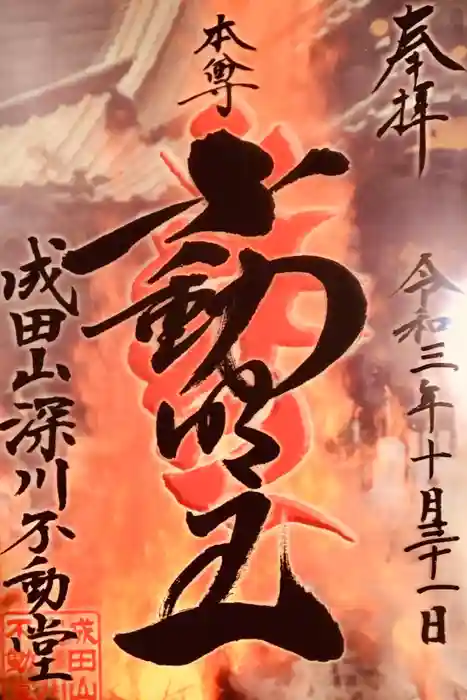 奉拝
令和三年十月三十一日
本尊
不動明王
成田山深川不動堂
成田山
不動